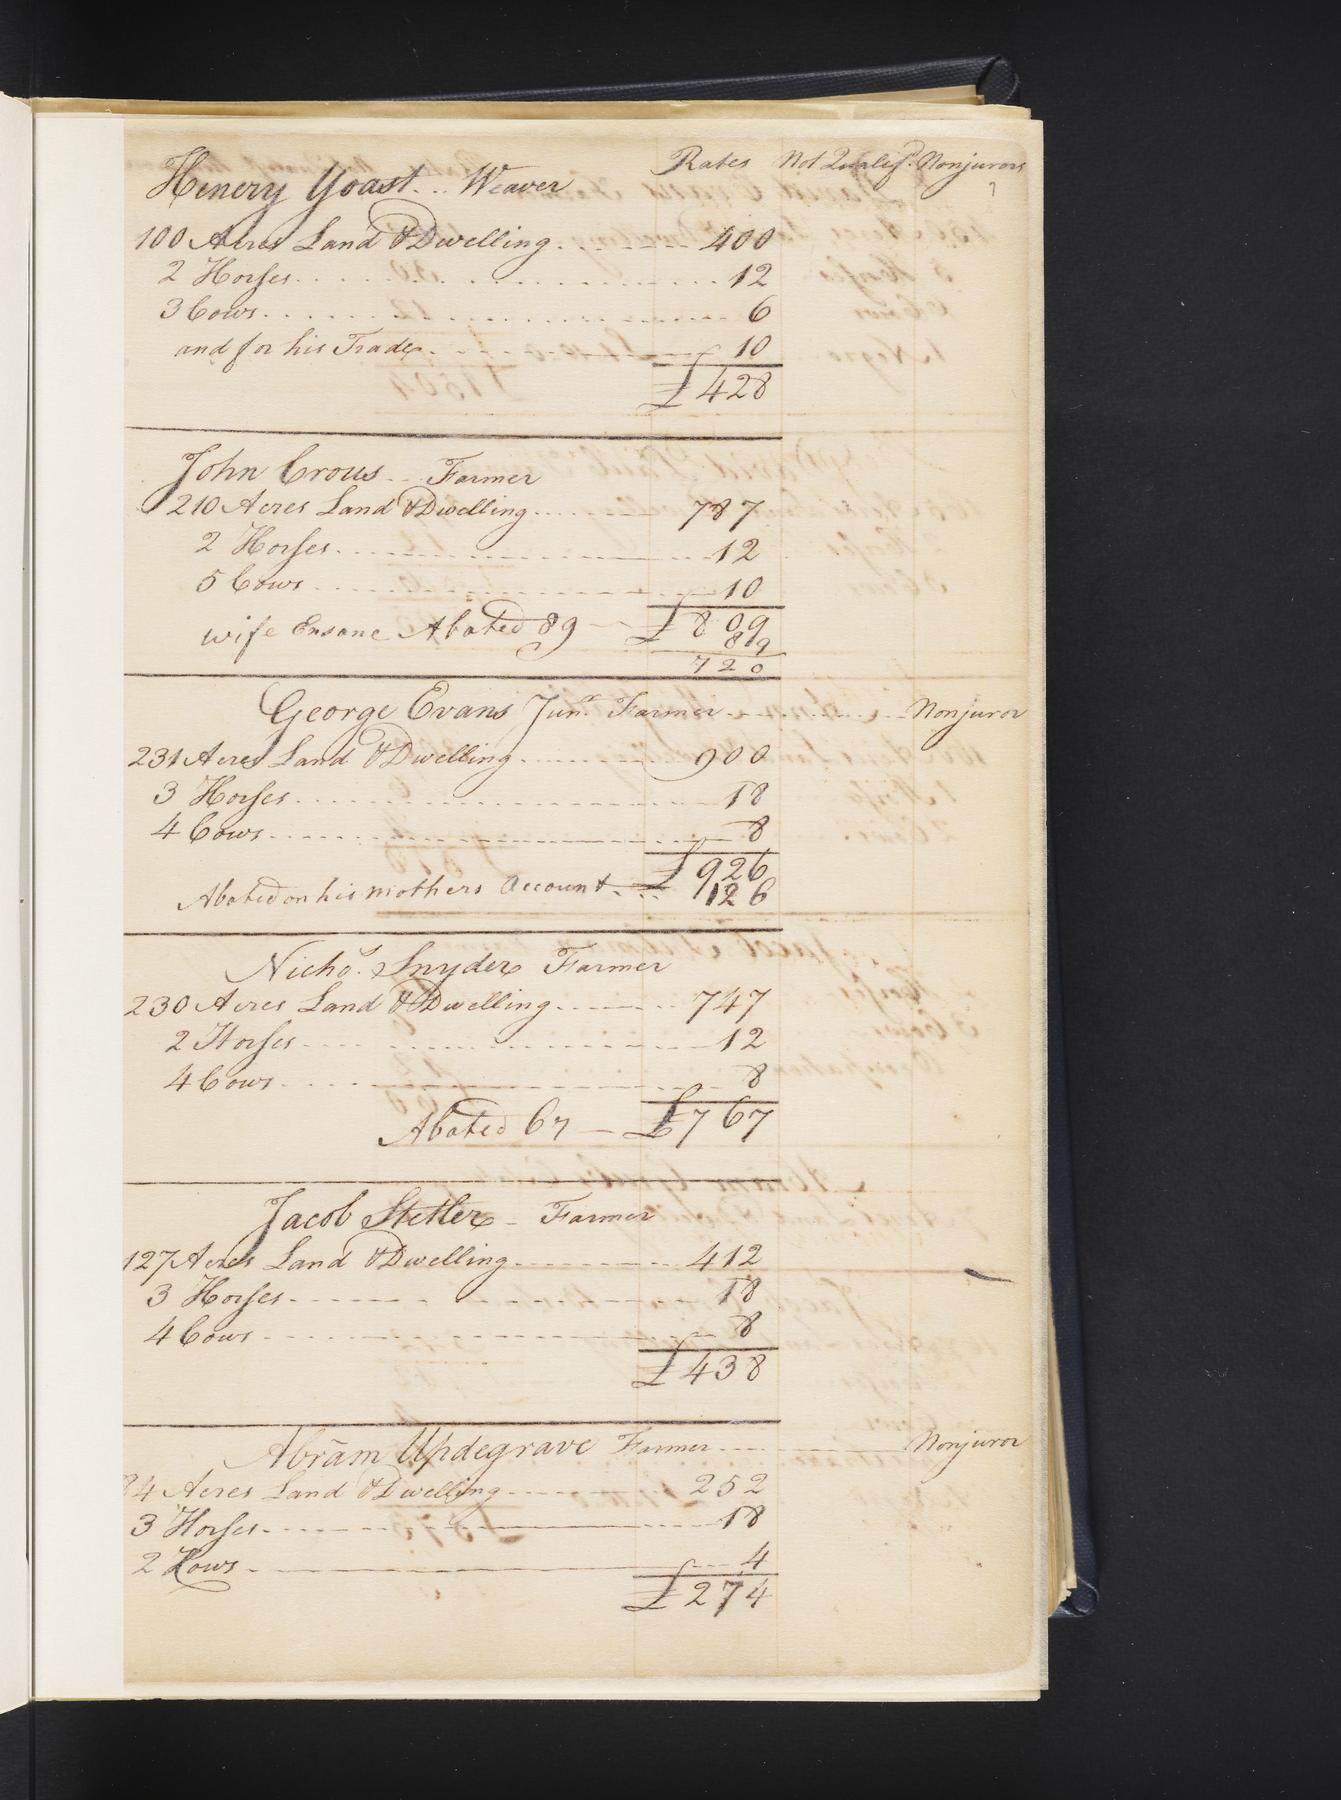 Rates Not Qualif.d Nonjurors
Henery Yoast .. Weaver
100 Acres Land & Dwelling ........ 400
2 Horses ........ 12
3 Cows ........ 6
and for his Trade ........ 10
£ 428
John Crous .. Farmer
210 Acres Land & Dwelling ........ 787
2 Horses ........ 12
5 Cows ........ 10
wife Ensane Abated 89 — £ 809
89
720
George Evans Jun.r Farmer ........ Nonjuror
231 Acres Land & Dwelling ........ 900
3 Horses ........ 18
4 Cows ........ 8
£ 926
Abated on his mothers account ... 126
Nicho.s Snyder Farmer
230 Acres Land & Dwelling ........ 747
2 Horses ........ 12
4 Cows ........ 8
Abated 67 — £ 767
Jacob Stetler - Farmer
127 Acres Land & Dwelling ........ 412
3 Horses ........ 18
4 Cows ........ 8
£ 438
Abrām Updegrave Farmer ........ Nonjuror
84 Acres Land & Dwelling ........ 252
3 Horses ........ 18
2 Kows ........ 4
£ 274